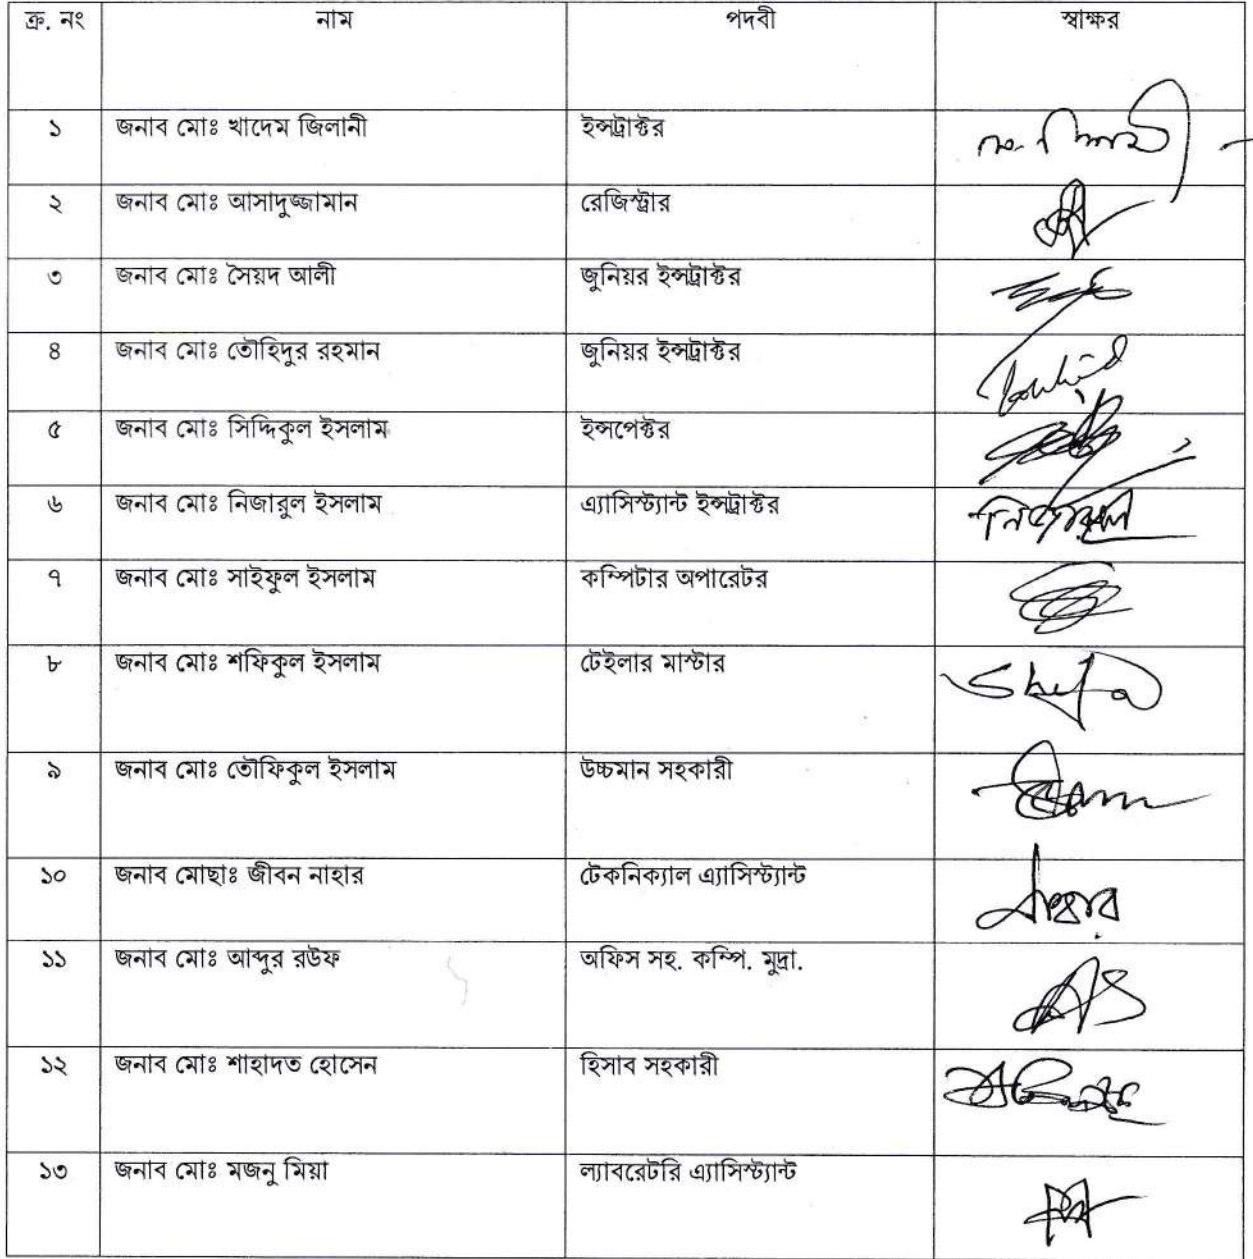 ক্র. নং নাম পদবী স্বাক্ষর
১ জনাব মোঃ খাদেম জিলানী ইন্সট্রাক্টর
২ জনাব মোঃ আসাদুজ্জামান রেজিস্ট্রার
৩ জনাব মোঃ সৈয়দ আলী জুনিয়র ইন্সট্রাক্টর
৪ জনাব মোঃ তৌহিদুর রহমান জুনিয়র ইন্সট্রাক্টর
৫ জনাব মোঃ সিদ্দিকুল ইসলাম ইন্সপেক্টর
৬ জনাব মোঃ নিজারুল ইসলাম এ্যাসিস্ট্যান্ট ইন্সট্রাক্টর নিজারুল
৭ জনাব মোঃ সাইফুল ইসলাম কম্পিটার অপারেটর
৮ জনাব মোঃ শফিকুল ইসলাম টেইলার মাস্টার
৯ জনাব মোঃ তৌফিকুল ইসলাম উচ্চমান সহকারী
১০ জনাব মোছাঃ জীবন নাহার টেকনিক্যাল এ্যাসিস্ট্যান্ট
১১ জনাব মোঃ আব্দুর রউফ অফিস সহ. কম্পি. মুদ্রা.
১২ জনাব মোঃ শাহাদত হোসেন হিসাব সহকারী
১৩ জনাব মোঃ মজনু মিয়া ল্যাবরেটরি এ্যাসিস্ট্যান্ট